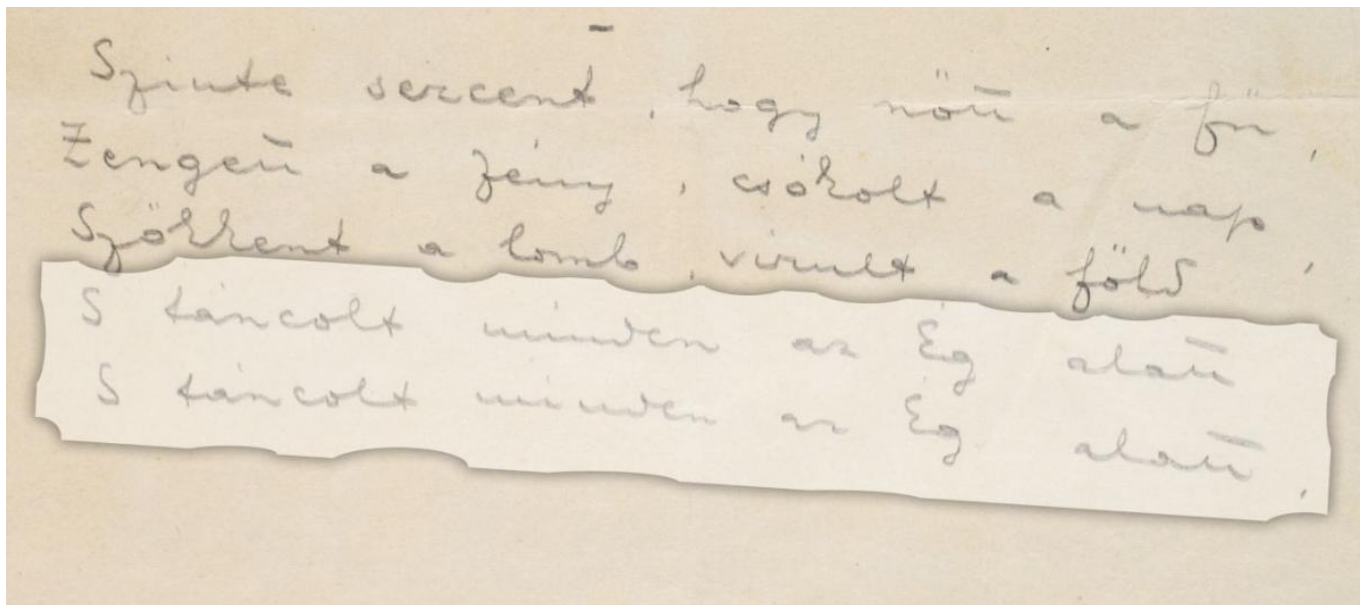 Szinte sercent, hogy nőtt a fű,
Zengett a fény, csókolt a nap
Szökkent a lomb, virult a föld,
S táncolt minden az Ég alatt
S táncolt minden az Ég alatt,